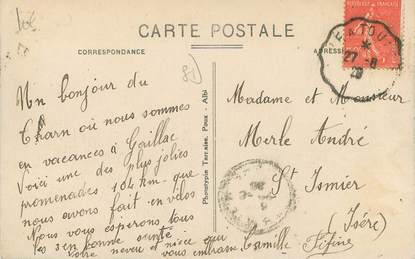 CARTE POSTALE
CORRESPONDANCE
ADRESSE
Un bonjour du
Tharn où nous sommes
en vacances à Gaillac
Voici une des plus jolies
promenades 104 km que
nous avons fait en vélos
Nous vous espérons tous
les 5 en bonne santé
votre neveu et nièce qui
vous embrasse Camille Fifine
Phototypie Tarraise, Poux - Albi
Madame et Monsieur
Merle André
St Ismier
(Isère)
27 - 8